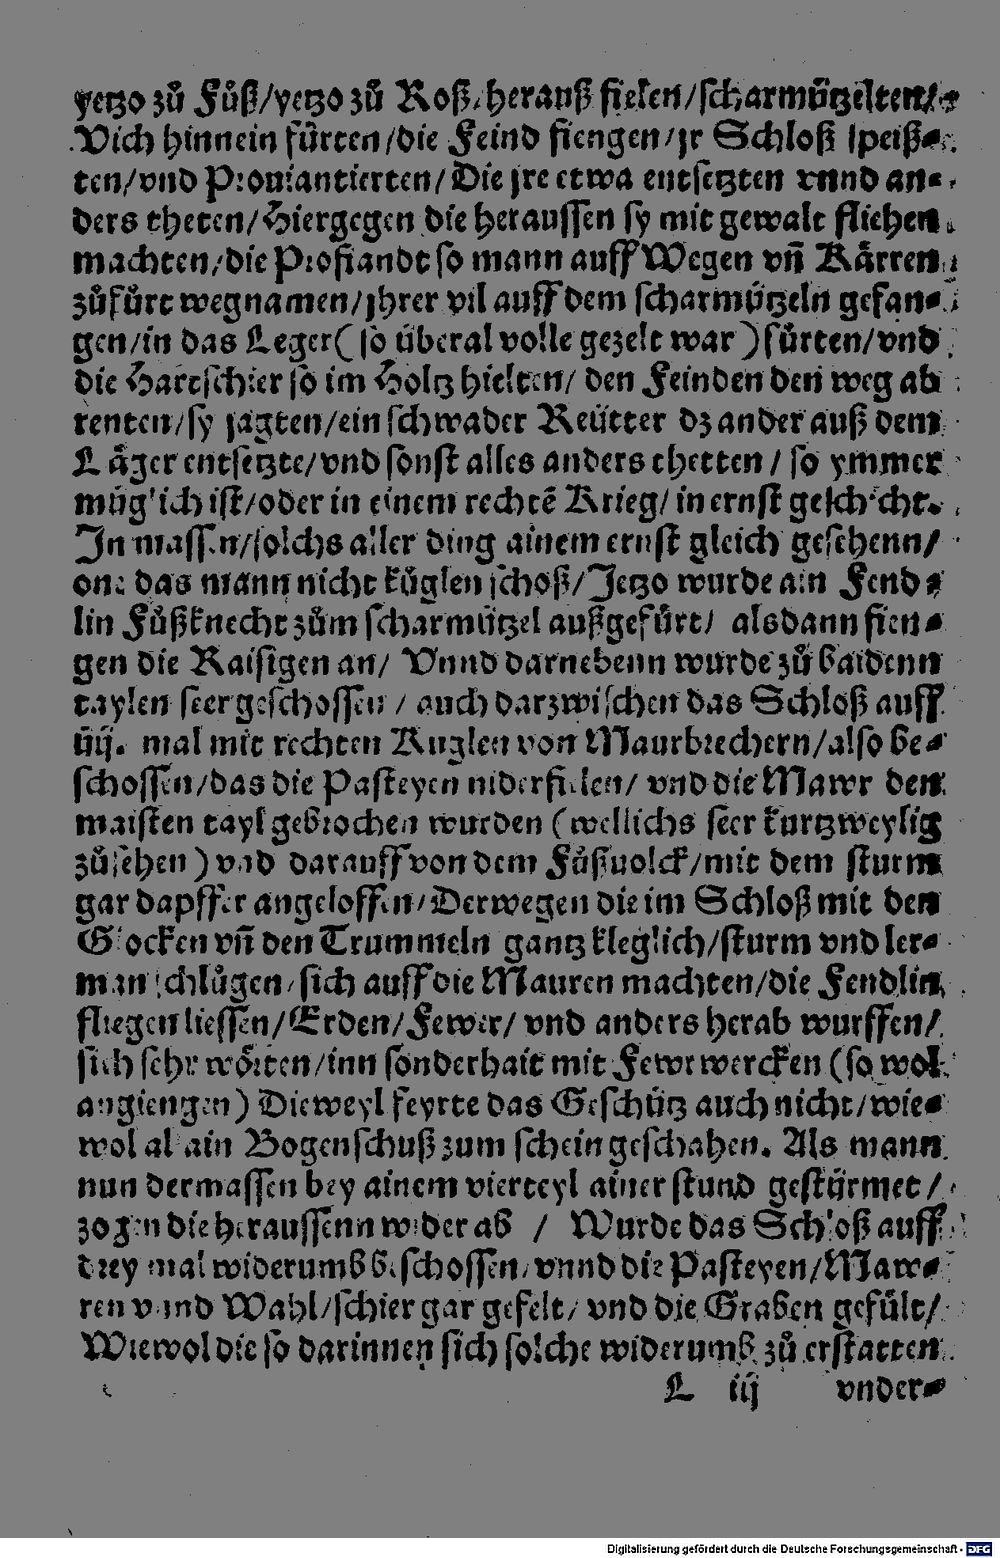 yetzo zů Fůß/yetzo zů Roß/herauß fielen/scharmützelten/
Vich hinnein fürten/die Feind fiengen/jr Schloß speiß⸗
ten/vnd Prouiantierten/Die jre etwa entsetzten vnnd an⸗
ders theten/Hiergegen die heraussen sy mit gewalt fliehen
machten/die Profiandt so mann auff Wegen vñ Kärren
zůfůrt wegnamen/jhrer vil auff dem scharmützeln gefan⸗
gen/in das Leger(so überal volle gezelt war)fürten/vnd
die Hartschier so im Holtz hielten/ den Feinden den weg ab
renten/sy jagten/ein schwader Reütter dz ander auß dem
Läger entsetzte/vnd sonst alles anders thetten / so ymmer
müglich ist/oder in einem rechtē Krieg/ in ernst geschicht.
In massen/solchs aller ding ainem ernst gleich geschenn/
one das mann nicht kůglen schoß/Jetzo wurde ain Fend⸗
lin Fůßknecht zům scharmützel außgefürt/ alsdann fien⸗
gen die Raisigen an/ Vnnd darnebenn wurde zů baidenn
taylen seer geschossen / auch darzwischen das Schloß auff
iiij. mal mit rechten Kuglen von Maurbrechern/also be⸗
schossen/das die Pasteyen niderfielen/ vnd die Mawr den
maisten tayl gebrochen wurden (wellichs seer kurtzweylig
zůsehen) vnd darauff von dem Fůßuolck/mit dem sturm
gar dapffer angeloffen/Derwegen die im Schloß mit den
Glocken vñ den Trummeln gantz kleglich/sturm vnd ler⸗
man schlůgen/sich auff die Mauren machten/die Fendlin
fliegen liessen/Erden/Fewer/ vnd anders herab wurffen/
sich sehr wörten/inn sonderhait mit Fewrwercken (so wol
angiengen) Dieweyl feyrte das Geschütz auch nicht/wie⸗
wol allain Bogenschuß zum schein geschahen. Als mann
nun dermassen bey ainem vierteyl ainer stund gestürmet /
zogen die heraussenn wider ab / Wurde das Schloß auff
drey mal widerumb beschossen/vnnd die Pasteyen/Maw⸗
ren vnnd Wahl/schier gar gefelt/ vnd die Graben gefült/
Wiewol die so darinnen sich solche widerumb zů erstatten
L iij vnder⸗
Digitalisierung gefördert durch die Deutsche Forschungsgemeinschaft - DFG